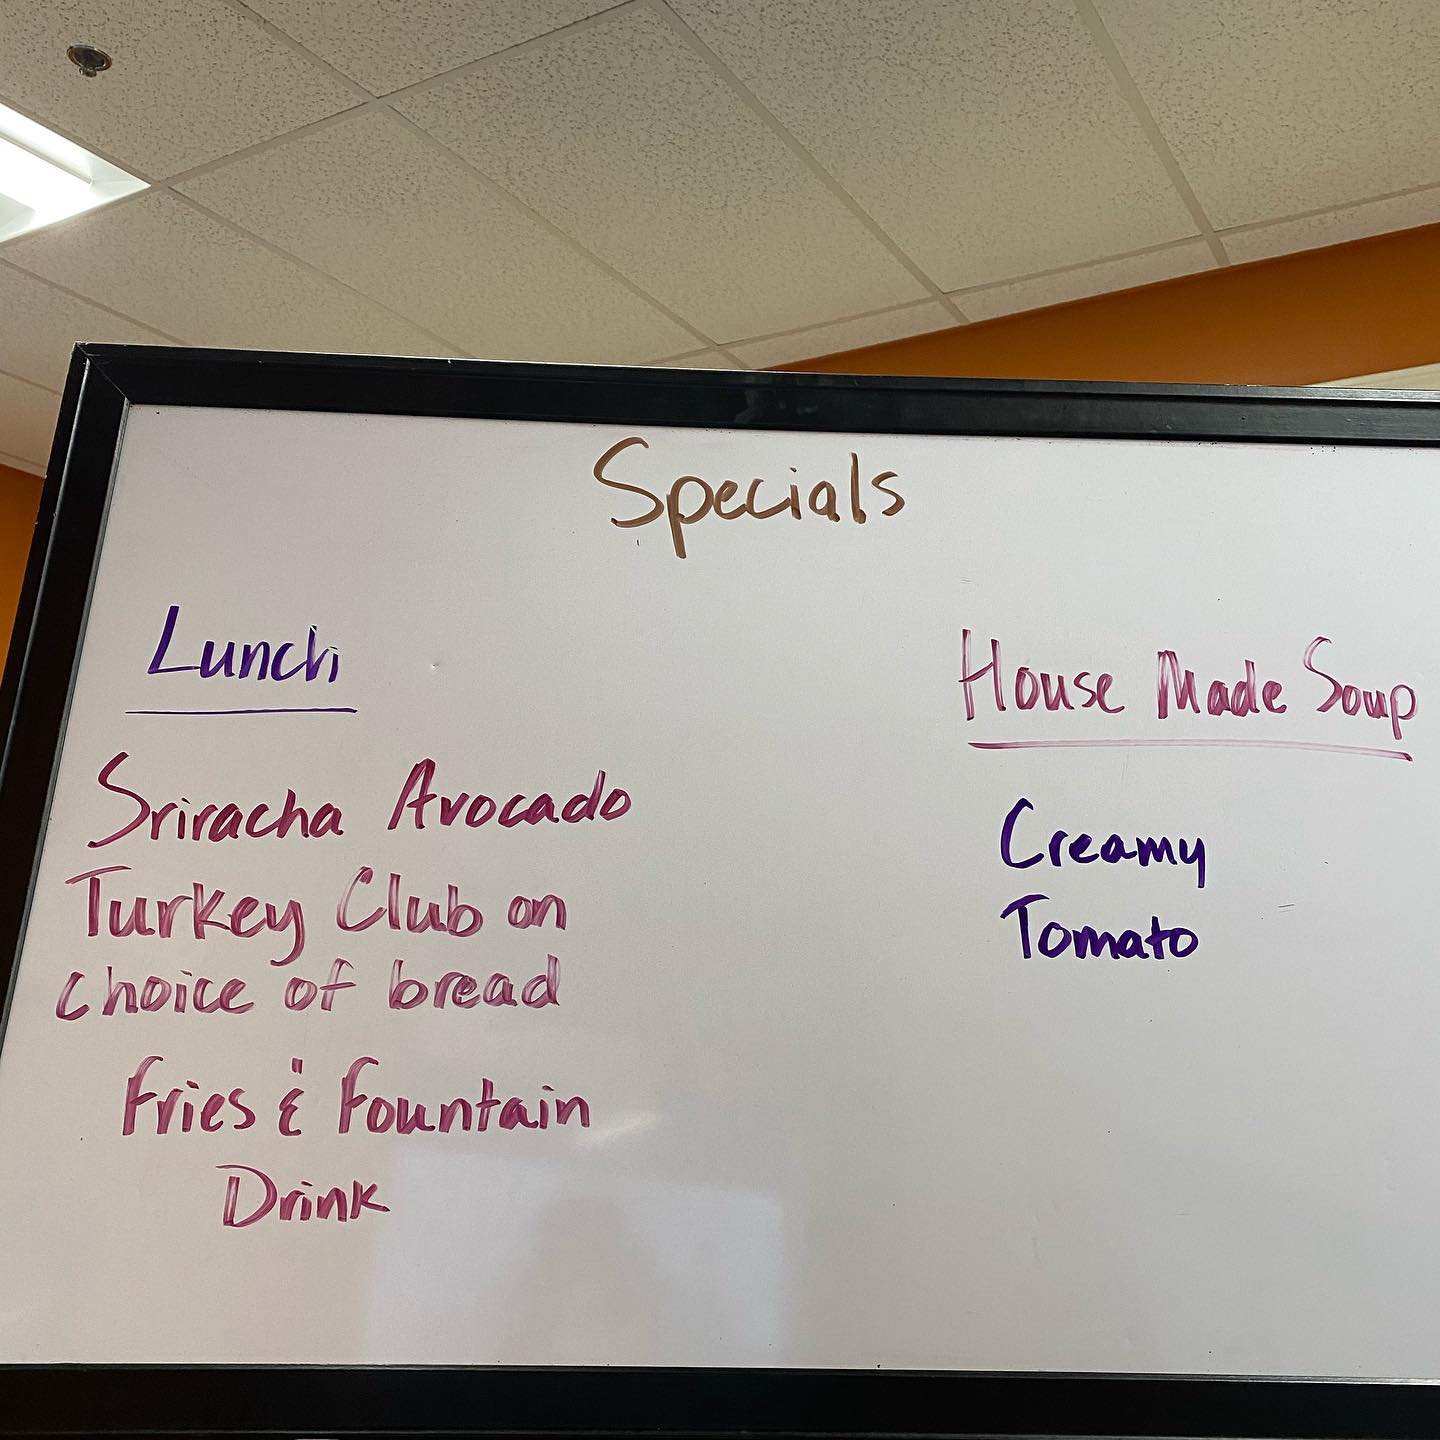 Specials
Lunch
Sriracha Avocado
Turkey Club on
choice of bread
Fries & Fountain
Drink
House Made Soup
Creamy
Tomato